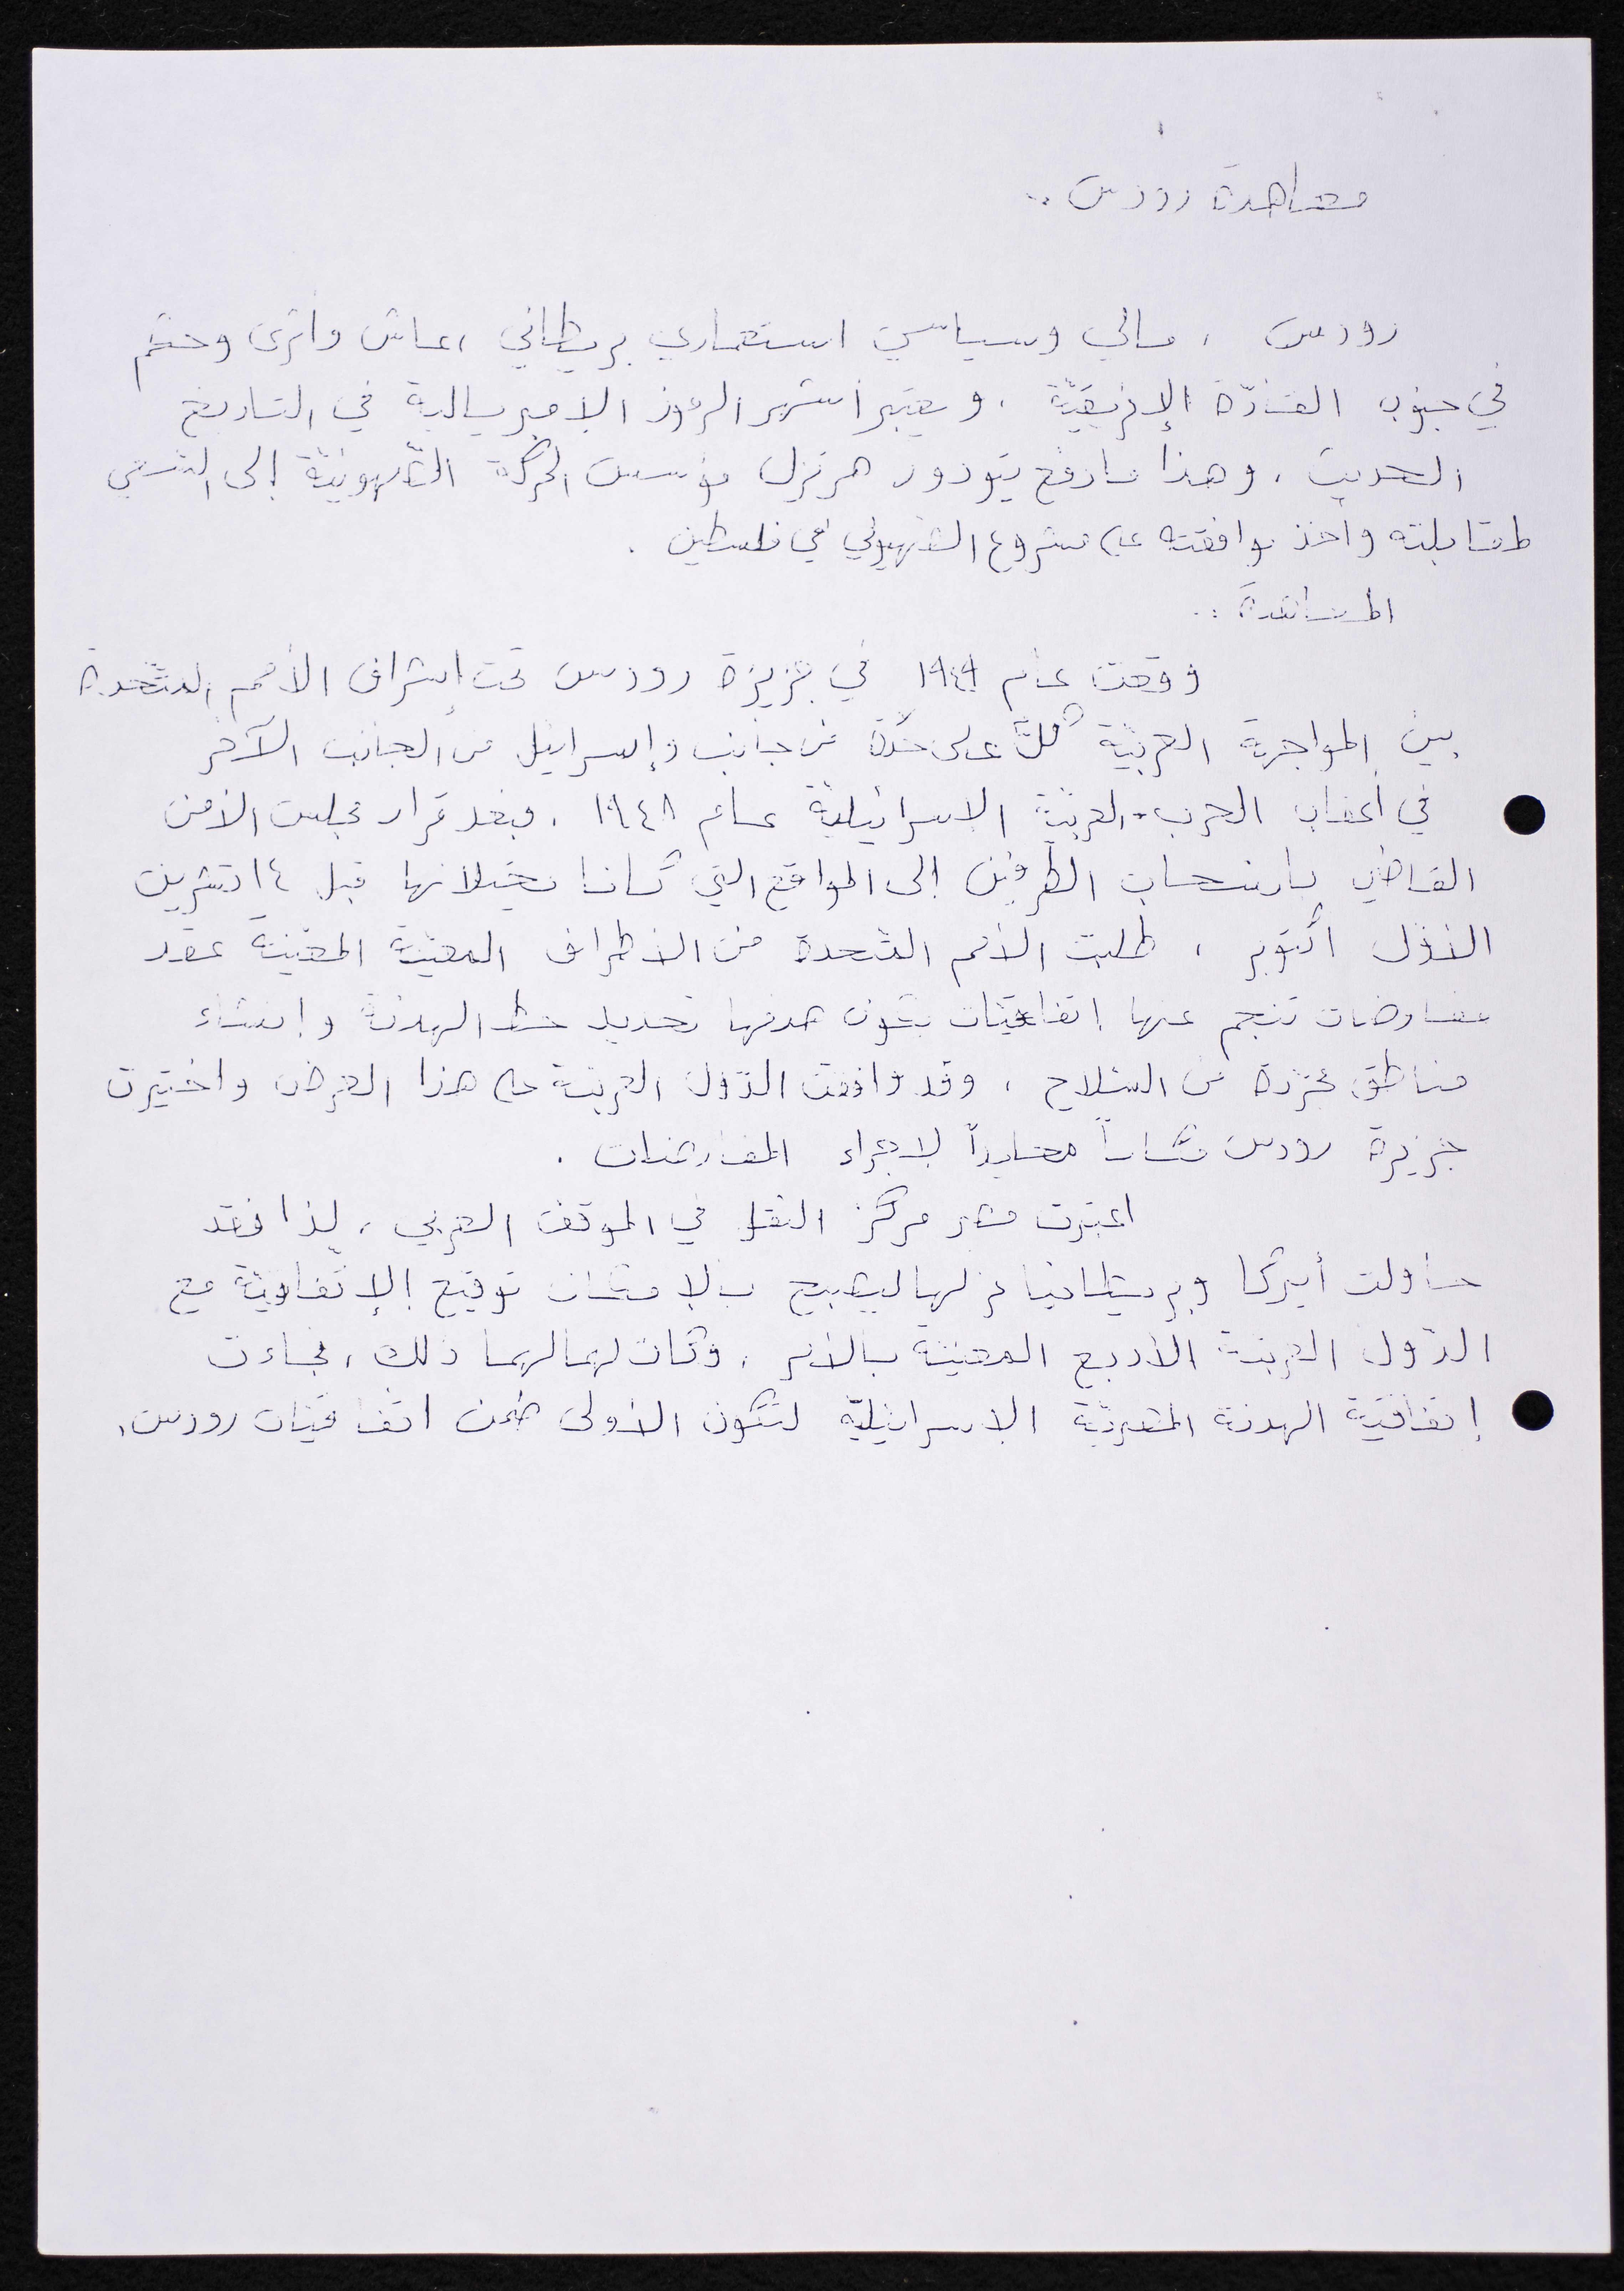 معاهدة رودس ..
رودس ، مالي وسياسي استعماري بريطاني ، عاش واثرى وحكم
في جنوب القارّة الإفريقيّة ، ويعتبر اشهر الرموز الامبريالية في التاريخ
الحديث ، وهذا ما دفع تيودور هرتزل مؤسس الحركة الصّهيونيّة إلى السّعي
لمقابلته واخذ موافقته على مشروع الصّهيوني في فلسطين .
المعاهدة ..
وقعت عام ١٩٤٩ في جزيرة رودس تحت إشراف الأمم المتّحدة
بين المواجهة العربيّة كلَّ على حدة من جانب وإسرائيل من الجانب الآخر
في أعقاب الحرب العربيّة الاسرائيليّة عام ١٩٤٨ ، وبعد قرار مجلس الأمن
القاضي بانسحاب الطّرفين إلى المواقع التي كانا يحتلانها قبل ١٤ تشرين
الاوّل أكتوبر ، طلبت الأمم المتّحدة من الأطراف المعنيّة المعنيّة عقد
مفاوضات تنجم عنها اتفاقيّات يكون هدفها تحديد خط الهدنة وإنشاء
مناطق مجرّدة من السّلاح ، وقد وافقت الدّول العربيّة على هذا العرض واختيرت
جزيرة رودس مكاناً محايداً لاجراء المفاوضات .
اعتبرت مصر مركز الثقل في الموقف العربي ، لذا فقد
حاولت أميركا وبريطانيا عزلها ليصبح بالامكان توقيع الإتفاقيّة مع
الدّول العربيّة الأربع المعنيّة بالأمر ، وكان لهما لهما ذلك ، فجاءت
إتفاقيّة الهدنة المصريّة الاسرائيليّة لتكون الأولى ضمن اتفاقيّات رودس ،